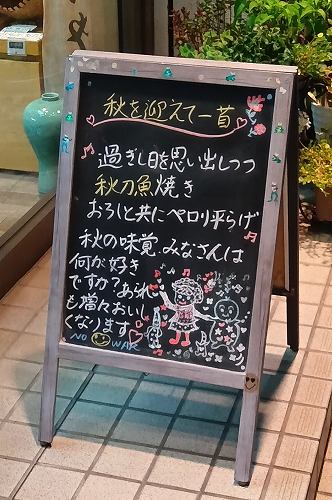 秋を迎えて一首
過ぎし日を思い出しつつ
秋刀魚焼き
おろしと共にペロリ平らげ
秋の味覚、みなさんは
何が好き
ですか?あられ
も増々おいし
くなります
NO WAR